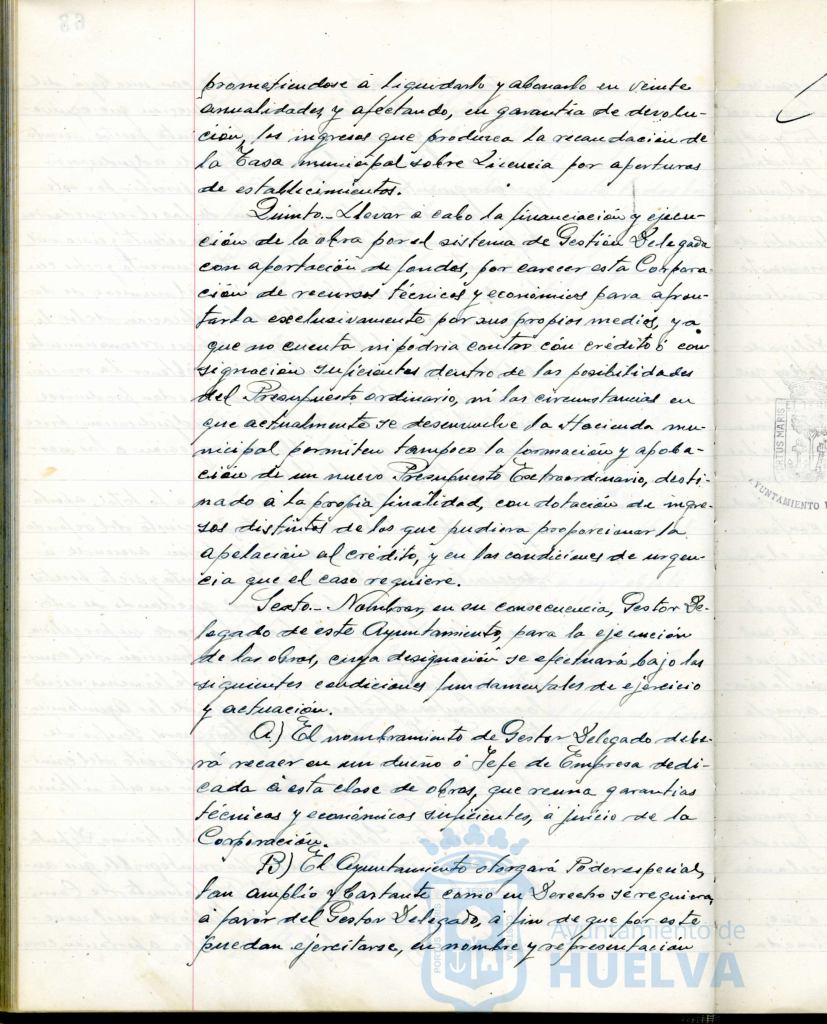 prometiendose á liquidarlo y abonarlo en veinte
anualidades, y afectando, en garantía de devolu-
ción, los ingresos que produzca la recaudación de
la Tasa municipal sobre Licencia por aperturas
de establecimientos.
Quinto.- Llevar á cabo la financiación y ejecu-
ción de la obra por el sistema de Gestión Delegada
con aportación de fondos, por carecer esta Corpora-
ción de recursos técnicos y económicos para afron-
tarla exclusivamente por sus propios medios, ya
que no cuenta ni podria contar con crédito ó con
signación suficientes dentro de las posibilidades
del Presupuesto ordinario, ni las circunstancias en
que actualmente se desenvuelve la Hacienda mu-
nicipal permiten tampoco la formación y apoba-
ción de un nuevo Presupuesto Extraordinario, desti-
nado á la propia finalidad, con dotación de ingre-
sos distintos de los que pudiera proporcionar la
apelación al crédito, y en las condiciones de urgen-
cia que el caso requiere.
Sexto.- Nombrar, en su consecuencia, Gestor De-
legado de este Ayuntamiento, para la ejecución
de las obras, cuya designación se efectuará bajo las
siguientes condiciones fundamentales de ejercicio
y actuación.
A) El nombramiento de Gestor Delegado debe-
rá recaer en un dueño ó Jefe de Empresa dedi-
cada á esta clase de obras, que reuna garantias
técnicas y económicas suficientes, á juicio de la
Corporación.
B) El Ayuntamiento otorgará Poder especial,
tan amplio y bastante como en Derecho se requiera,
á favor del Gestor Delegado, á fin de que por este
puedan ejercitarse, en nombre y representación
PORTUS MARIS
AYUNTAMIENTO
Ayuntamiento de
HUELVA